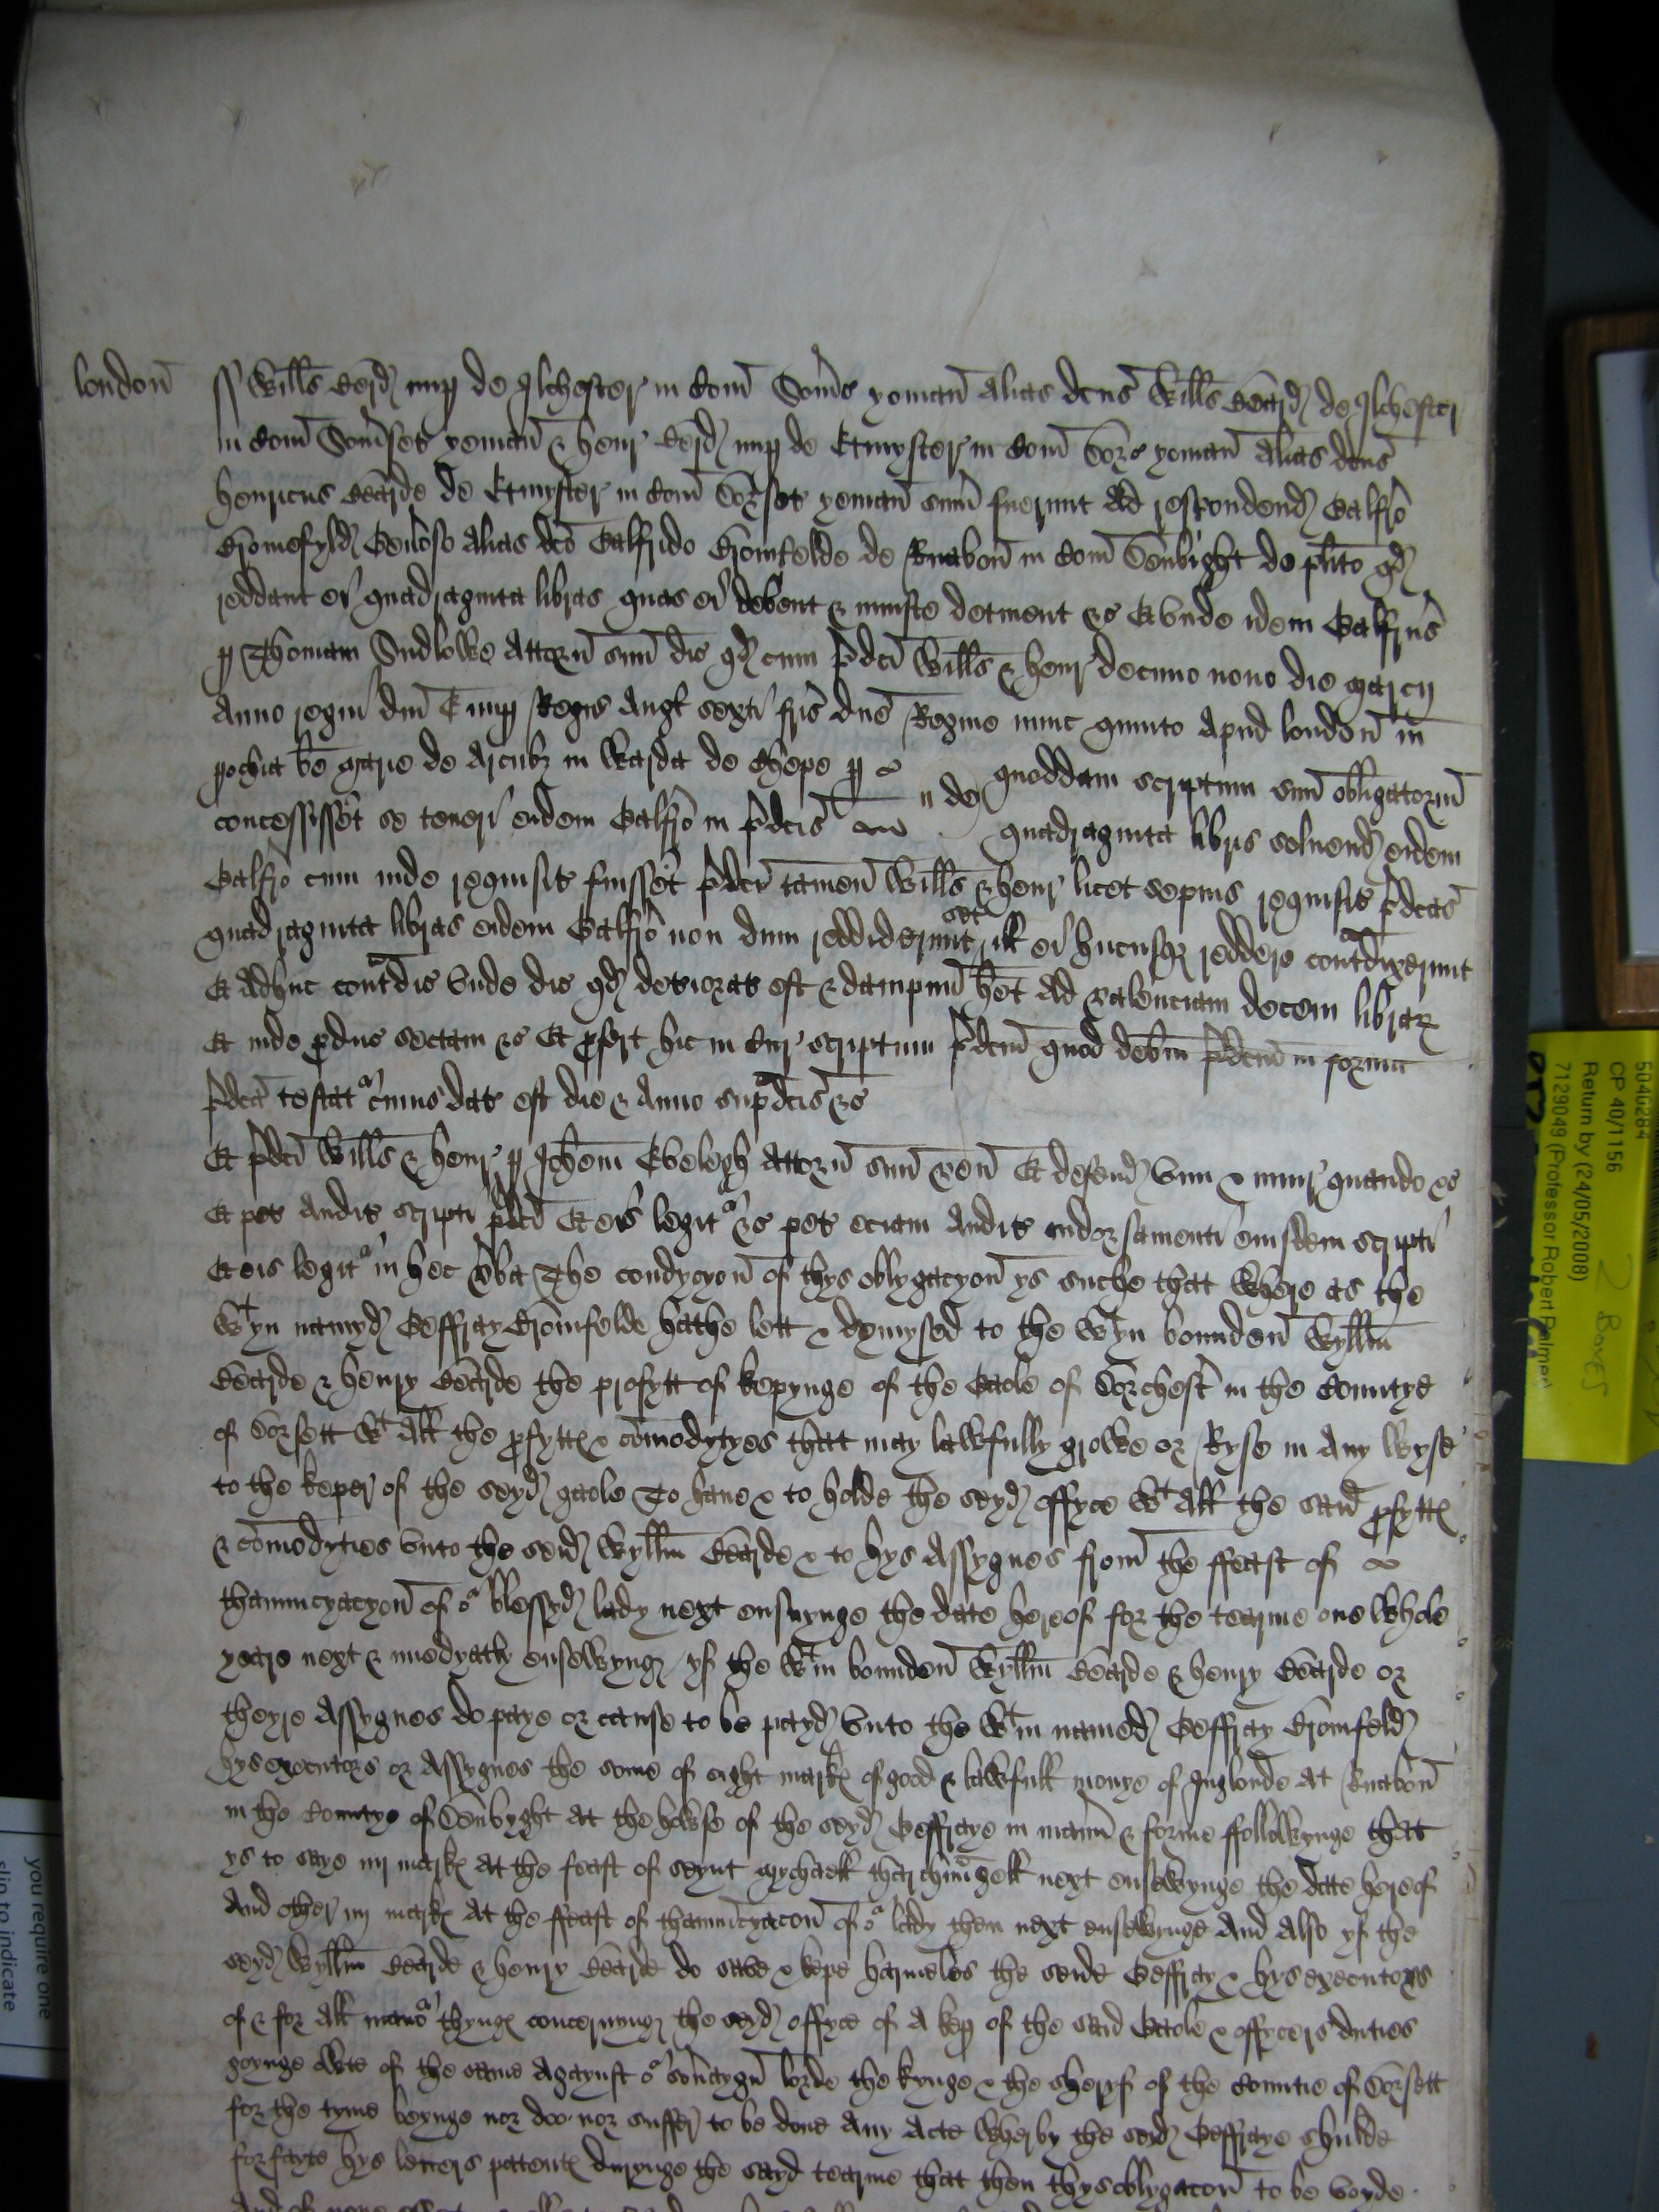 london ss Wills Gerd nup de Ilchester in Com Soms yoman alias dcus Wills Geard de Ilchester
in Com Somset yoman & henr Gerd nup de Etmyster in Com Dors yoman alias dcus
henricus Gearde de Etmyster in Com Dorset yoman sum fuerunt ad respondend Galfro
Bromefyld Genoso alias dco Galfrido Bromfelde de Ruabon in Com Denbight de plito qd
reddant ei quadraginta libras quas ei debent & iniuste detinent &c Et unde idem Galfrus
p Thomam Sudlowe Attorn suum dic qd cum pdci Wills & henr decimo nono die marcij
Anno regni dni E nup Regis Angl sexti fris dne Regine nunc quinto apud london in
pochia be marie de Arcub in Warda de Chepe p quoddam scriptum suum obligatorium
concessissent se teneri eidem Galfro in pdcis quadraginta libris solvend eidem
Galfro cum inde requisit fuissent pdci tamen Wills & henr licet sepius requisit pdcas
quadraginta libras eidem Galfro non dum reddiderunt set ill ei hucusq reddere contradixerunt
Et adhuc contradic unde dic qd deteriorat est & dampnum het ad valenciam decem librar
Et inde produc sectam &c Et profert hic in Cur scriptum pdcm quod debm pdcm in forma
pdca testat cuius dat est die & Anno supadcis &c
Et pdci Wills & henr p Johem Eveleygh attorn suum ven Et defend vim & iniur quando &c
Et pet audit scripti pdci Et eis legit &c pet eciam audit indorsamenti eiusdem scripti
Et eis legit in hec vba The condycyon of thys oblygacyon ys suche that where as the
Wtyn namyd Geffray Bromfelde hathe lett & demysed to the wtyn bounden Wyllm
Gearde & henry Gearde the profytt of kepynge of the Gaole of Dorchest in the Countye
of Dorsett wt all the pfytt & comodytyes that may lawfully growe or Ryse in any wyse
to the keper of the seyd gaole To have & to holde the seyd offyce wt all the said pfytt
& comodyties unto the seid Wyllm Gearde & to hys Assygnes from the ffeast of
thannucyacyon of or blessyd lady next ensuynge the date hereof for the tearme one whole
yeare next & imedyatly ensewyng yf the wtin bounden Wyllm Gearde & henry Gearde or
theyre Assygnes do paye or cause to be payd unto the wtin named Geffray Bromfeld
hys executors or Assygnes the some of eight mark of good & lawfull monye of Inglonde at Ruabon
in the Countye of Denbyght at the howse of the seyd Geffraye in mann & forme ffollowynge that
ys to saye iiij mark at the feast of seynt mychaell tharchangell next ensewynge the date hereof
And other iiij mark at the ffeast of thannucyacon of or lady then next ensewynge And also yf the
seyd Wyllm Gearde & henry Gearde do save & kepe harmeles the seide Geffray & hys executors
of & for all mano thyng concernyng the seyd offyce of A kep of the said Gaole & offycers duties
goynge owte of the same agaynst or soveraygn lorde the kynge & the sheryf of the Countie of Dorsett
for the tyme beynge nor doo nor suffer to be done any Acte wherby the seyd Geffraye shulde
forfayte hys letters patent durynge the sayd tearme that then thys oblygacon to be voyde
5040284
CP 40/1156
Return by (24/05/2008)
7129049 (Professor Robert Palmer)
2 Boxes
you require one
slip to indicate